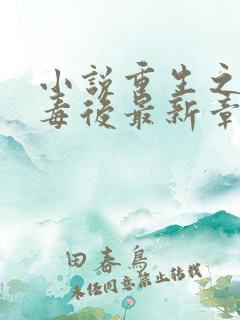 小说重生之
毒後最新章
田春鸟
未经同意禁止转载